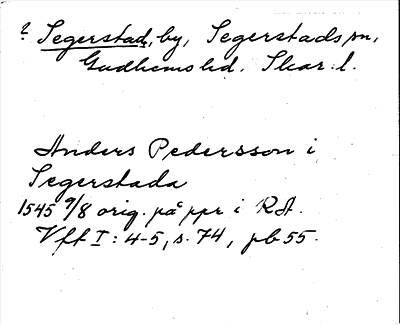 ? Segerstad, by, Segerstads sn,
Gudhems hd. Skar. l.
Anders Pedersson i
Segerstada
1545 9/8 orig. på ppr i RA.
Vft I: 4-5, s. 74, pb 55.